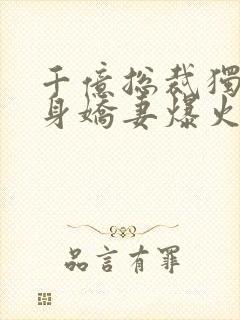 千億總裁獨
身嬌妻爆火
品言有罪